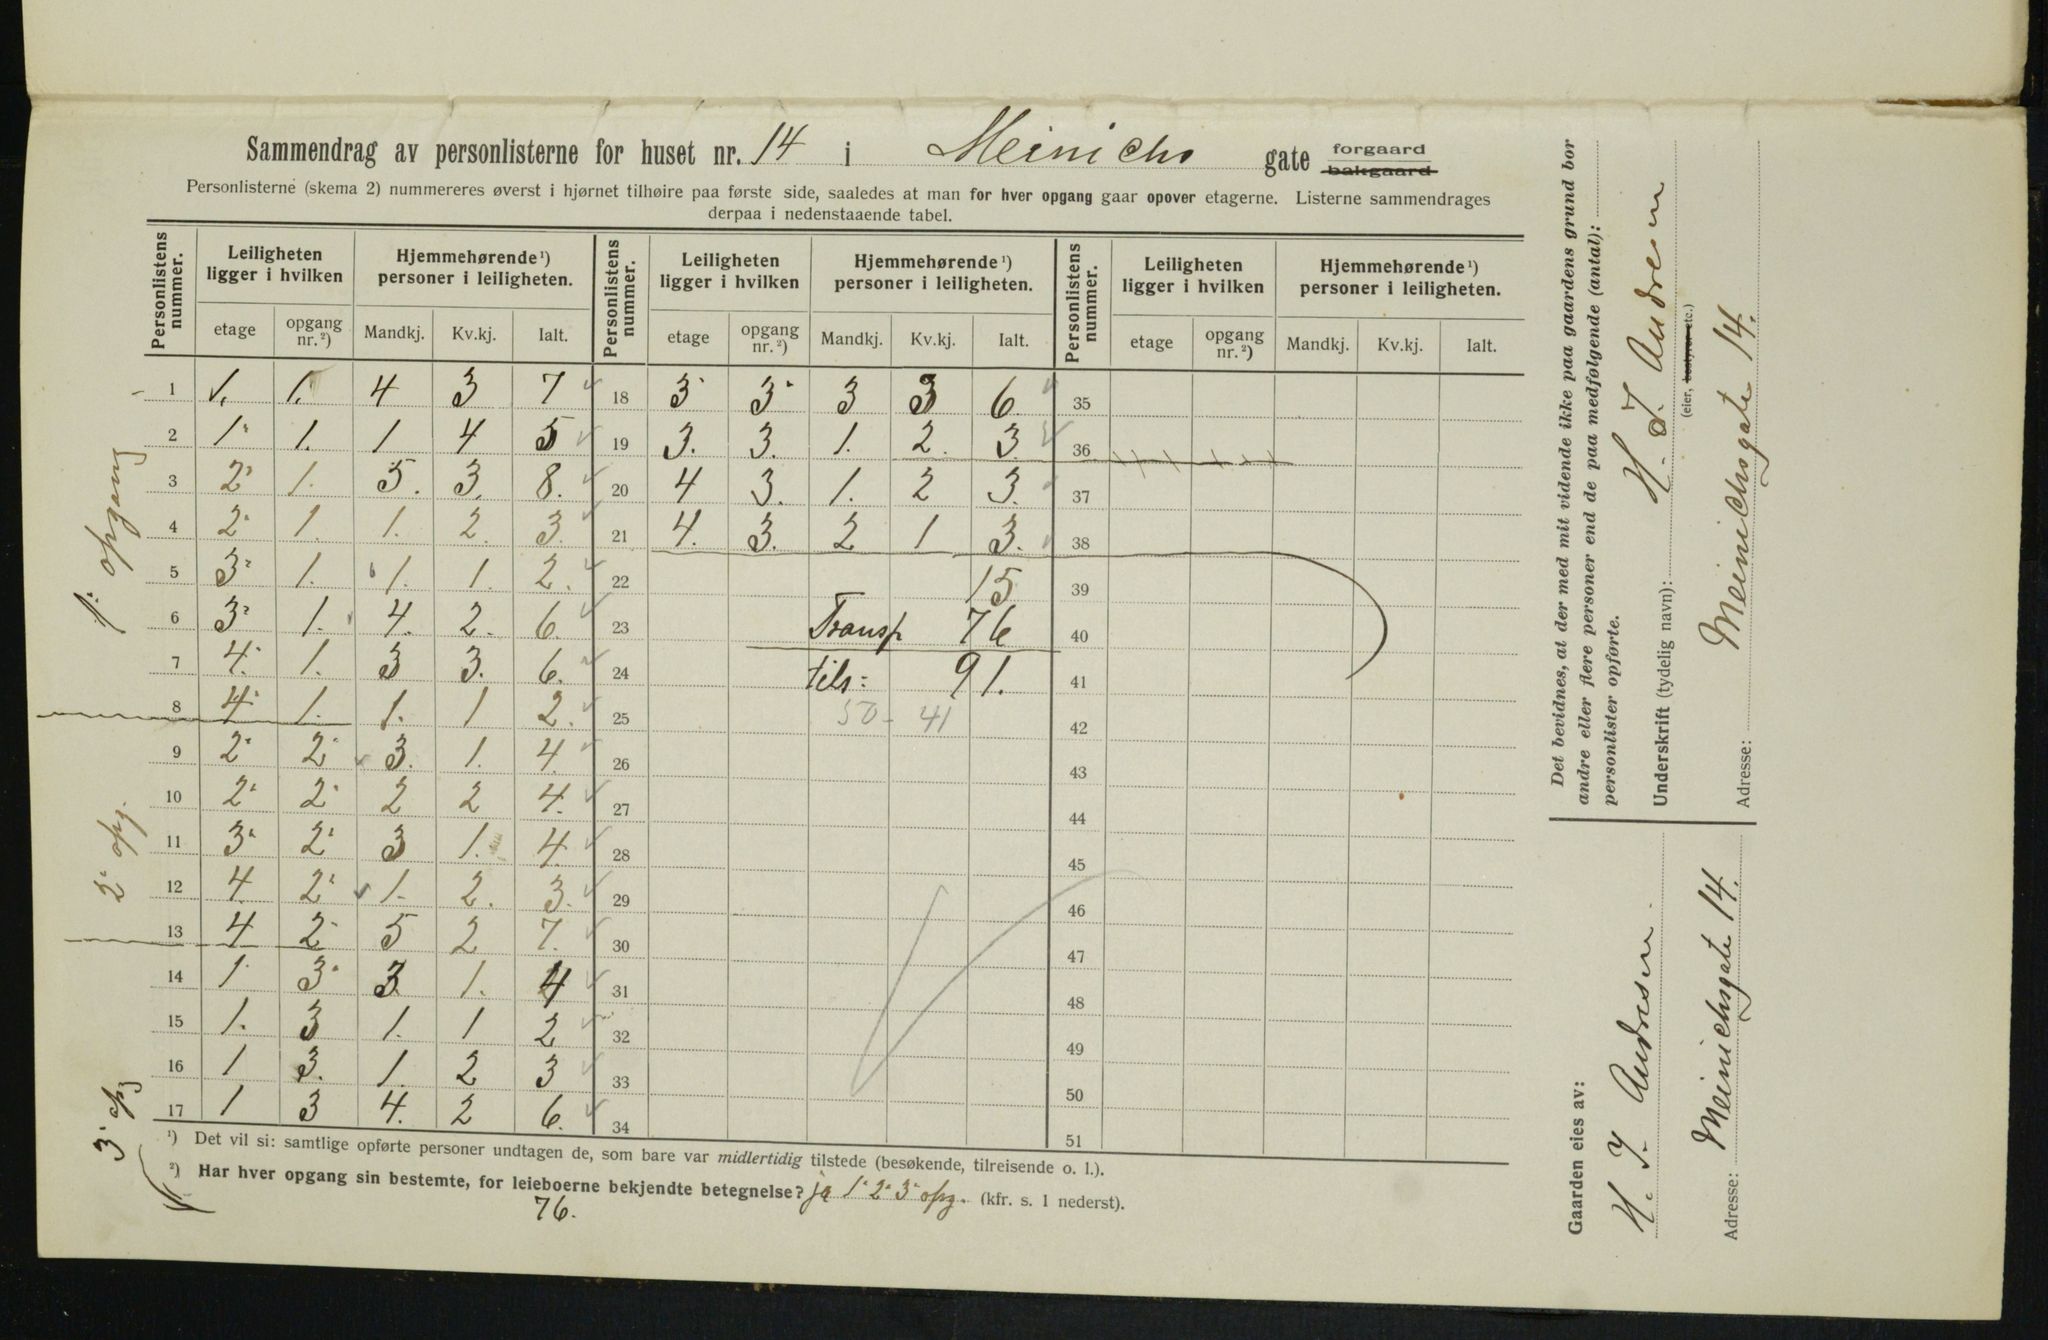 Sammendrag av personlisterne for huset nr. 14 i Meinichs gate forgaard bakgaard
Personlisterne (skema 2) nummereres øverst i hjørnet tilhøire paa første side, saaledes at man for hver opgang gaar opover etagerne. Listerne sammendrages
derpaa i nedenstaaende tabel.
Personlistens nummer. Leiligheten ligger i hvilken Hjemmehørende ¹) personer i leiligheten. Personlistens nummer. Leiligheten ligger i hvilken Hjemmehørende ¹) personer i leiligheten. Personlistens nummer. Leiligheten ligger i hvilken Hjemmehørende ¹) personer i leiligheten.
etage opgang nr. ²) Mandkj. Kv.kj. Ialt. etage opgang nr. ²) Mandkj. Kv.kj. Ialt. etage opgang nr. ²) Mandkj. Kv.kj. Ialt.
1 1. 1. 4 3 7 18 3 3 3 3 6 35
2 1 1. 1 4 5 19 3. 3. 1. 2. 3 36
3 2 1. 5. 3. 8. 20 4 3. 1. 2 3. 37
4 2 1. 1. 2. 3. 21 4. 3. 2 1 3. 38
5 3 1. 1. 1. 2. 22 15 39
6 3 1. 4. 2. 6. 23 Transp 76 40
7 4. 1. 3 3. 6. 24 tils: 91. 41
8 4 1. 1. 1 2. 25 50 - 41 42
9 2 2 3. 1. 4. 26 43
10 2 2 2 2 4. 27 44
11 3 2 3 1. 4. 28 45
12 4. 2 1. 2. 3. 29 46
13 4 2 5 2 7. 30 47
14 1 3 3. 1. 4 31 48
15 1. 3 1. 1 2 32 49
16 1 3. 1. 2 3 33 50
17 1 3 4. 2 6. 34 51
1. opgang
2. opg.
3. opg
¹) Det vil si: samtlige opførte personer undtagen de, som bare var midlertidig tilstede (besøkende, tilreisende o. l.).
²) Har hver opgang sin bestemte, for leieboerne bekjendte betegnelse? ja 1. 2. 3. opg. (kfr. s. 1 nederst).
76.
Det bevidnes, at der med mit vidende ikke paa gaardens grund bor
andre eller flere personer end de paa medfølgende (antal):
personlister opførte.
Underskrift (tydelig navn): H. J. Andresen
(eier, bestyrer etc.)
Adresse: Meinichsgate 14.
Gaarden eies av:
H. J. Andresen.
Adresse: Meinichsgate 14.